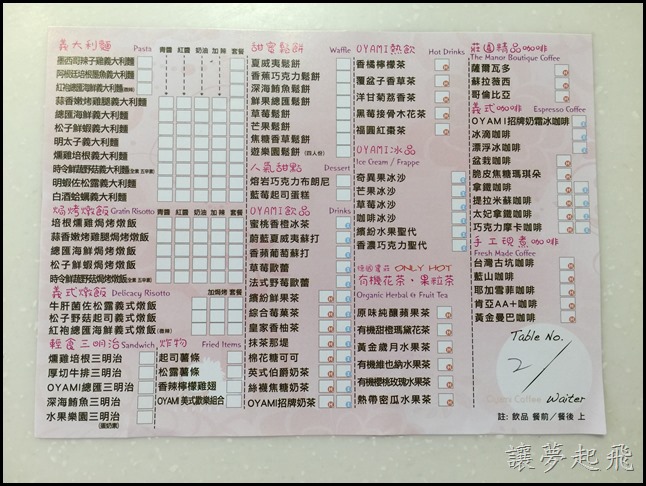 義大利麵 Pasta 青醬 紅醬 奶油 加辣 套餐
墨西哥辣子雞義大利麵
阿根廷培根墨魚義大利麵
紅袍總匯海鮮義大利麵(微辣)
蒜香嫩烤雞腿義大利麵
總匯海鮮義大利麵
松子鮮蝦義大利麵
明太子義大利麵
燻雞培根義大利麵
時令鮮蔬野菇義大利麵(全素 五辛素)
明蝦佐松露義大利麵
白酒蛤蠣義大利麵
焗烤燉飯 Gratin Risotto 青醬 紅醬 奶油 加辣 套餐
培根燻雞焗烤燉飯
蒜香嫩烤雞腿焗烤燉飯
總匯海鮮焗烤燉飯
松子鮮蝦焗烤燉飯
時令鮮蔬野菇焗烤燉飯(全素 五辛素)
義式燉飯 Delicacy Risotto 加焗烤 套餐
牛肝菌佐松露義式燉飯
松子野菇起司義式燉飯
紅袍總匯海鮮義式燉飯(微辣)
輕食三明治 Sandwich
燻雞培根三明治
厚切牛排三明治
OYAMI總匯三明治
深海鮪魚三明治
水果樂園三明治
(蛋奶素)
炸物 Fried Items
起司薯條
松露薯條
香辣檸檬雞翅
OYAMI 美式歡樂組合
甜蜜鬆餅 Waffle
夏威夷鬆餅
香蕉巧克力鬆餅
深海鮪魚鬆餅
鮮果總匯鬆餅
草莓鬆餅
芒果鬆餅
焦糖香草鬆餅
遊樂園鬆餅(四人份)
人氣甜點 Dessert
熔岩巧克力布朗尼
藍莓起司蛋糕
OYAMI飲品 Drinks
蜜桃香橙冰茶
蔚藍夏威夷蘇打
香蘋葡萄蘇打
草莓歐蕾
法式野莓歐蕾
繽紛鮮果茶
綜合莓菓茶
皇家香柚茶
抹茶那堤
棉花糖可可
英式伯爵奶茶
絲襪焦糖奶茶
OYAMI招牌奶茶
OYAMI熱飲 Hot Drinks
香橘檸檬茶
覆盆子香草茶
洋甘菊荔香茶
黑莓接骨木花茶
福圓紅棗茶
OYAMI冰品
Ice Cream / Frappe
奇異果冰沙
芒果冰沙
草莓冰沙
咖啡冰沙
繽紛水果聖代
香濃巧克力聖代
德國農莊 ONLY HOT
有機花茶、果粒茶
Organic Herbal & Fruit Tea
原味純釀蘋果茶
有機甜橙瑪黛茶
黃金歲月水果茶
有機維也納水果茶
有機櫻桃玫瑰水果茶
熱帶密瓜水果茶
莊園精品咖啡
The Manor Boutique Coffee
薩爾瓦多
蘇拉薇西
哥倫比亞
義式咖啡 Espresso Coffee
OYAMI招牌奶霜冰咖啡
冰滴咖啡
漂浮冰咖啡
盆栽咖啡
脆皮焦糖瑪琪朵
拿鐵咖啡
提拉米蘇咖啡
太妃拿鐵咖啡
巧克力摩卡咖啡
手工現煮咖啡
Fresh Made Coffee
台灣古坑咖啡
藍山咖啡
耶加雪菲咖啡
肯亞AA+咖啡
黃金曼巴咖啡
Table No.
2
Waiter
註: 飲品 餐前/餐後 上
讓夢起飛